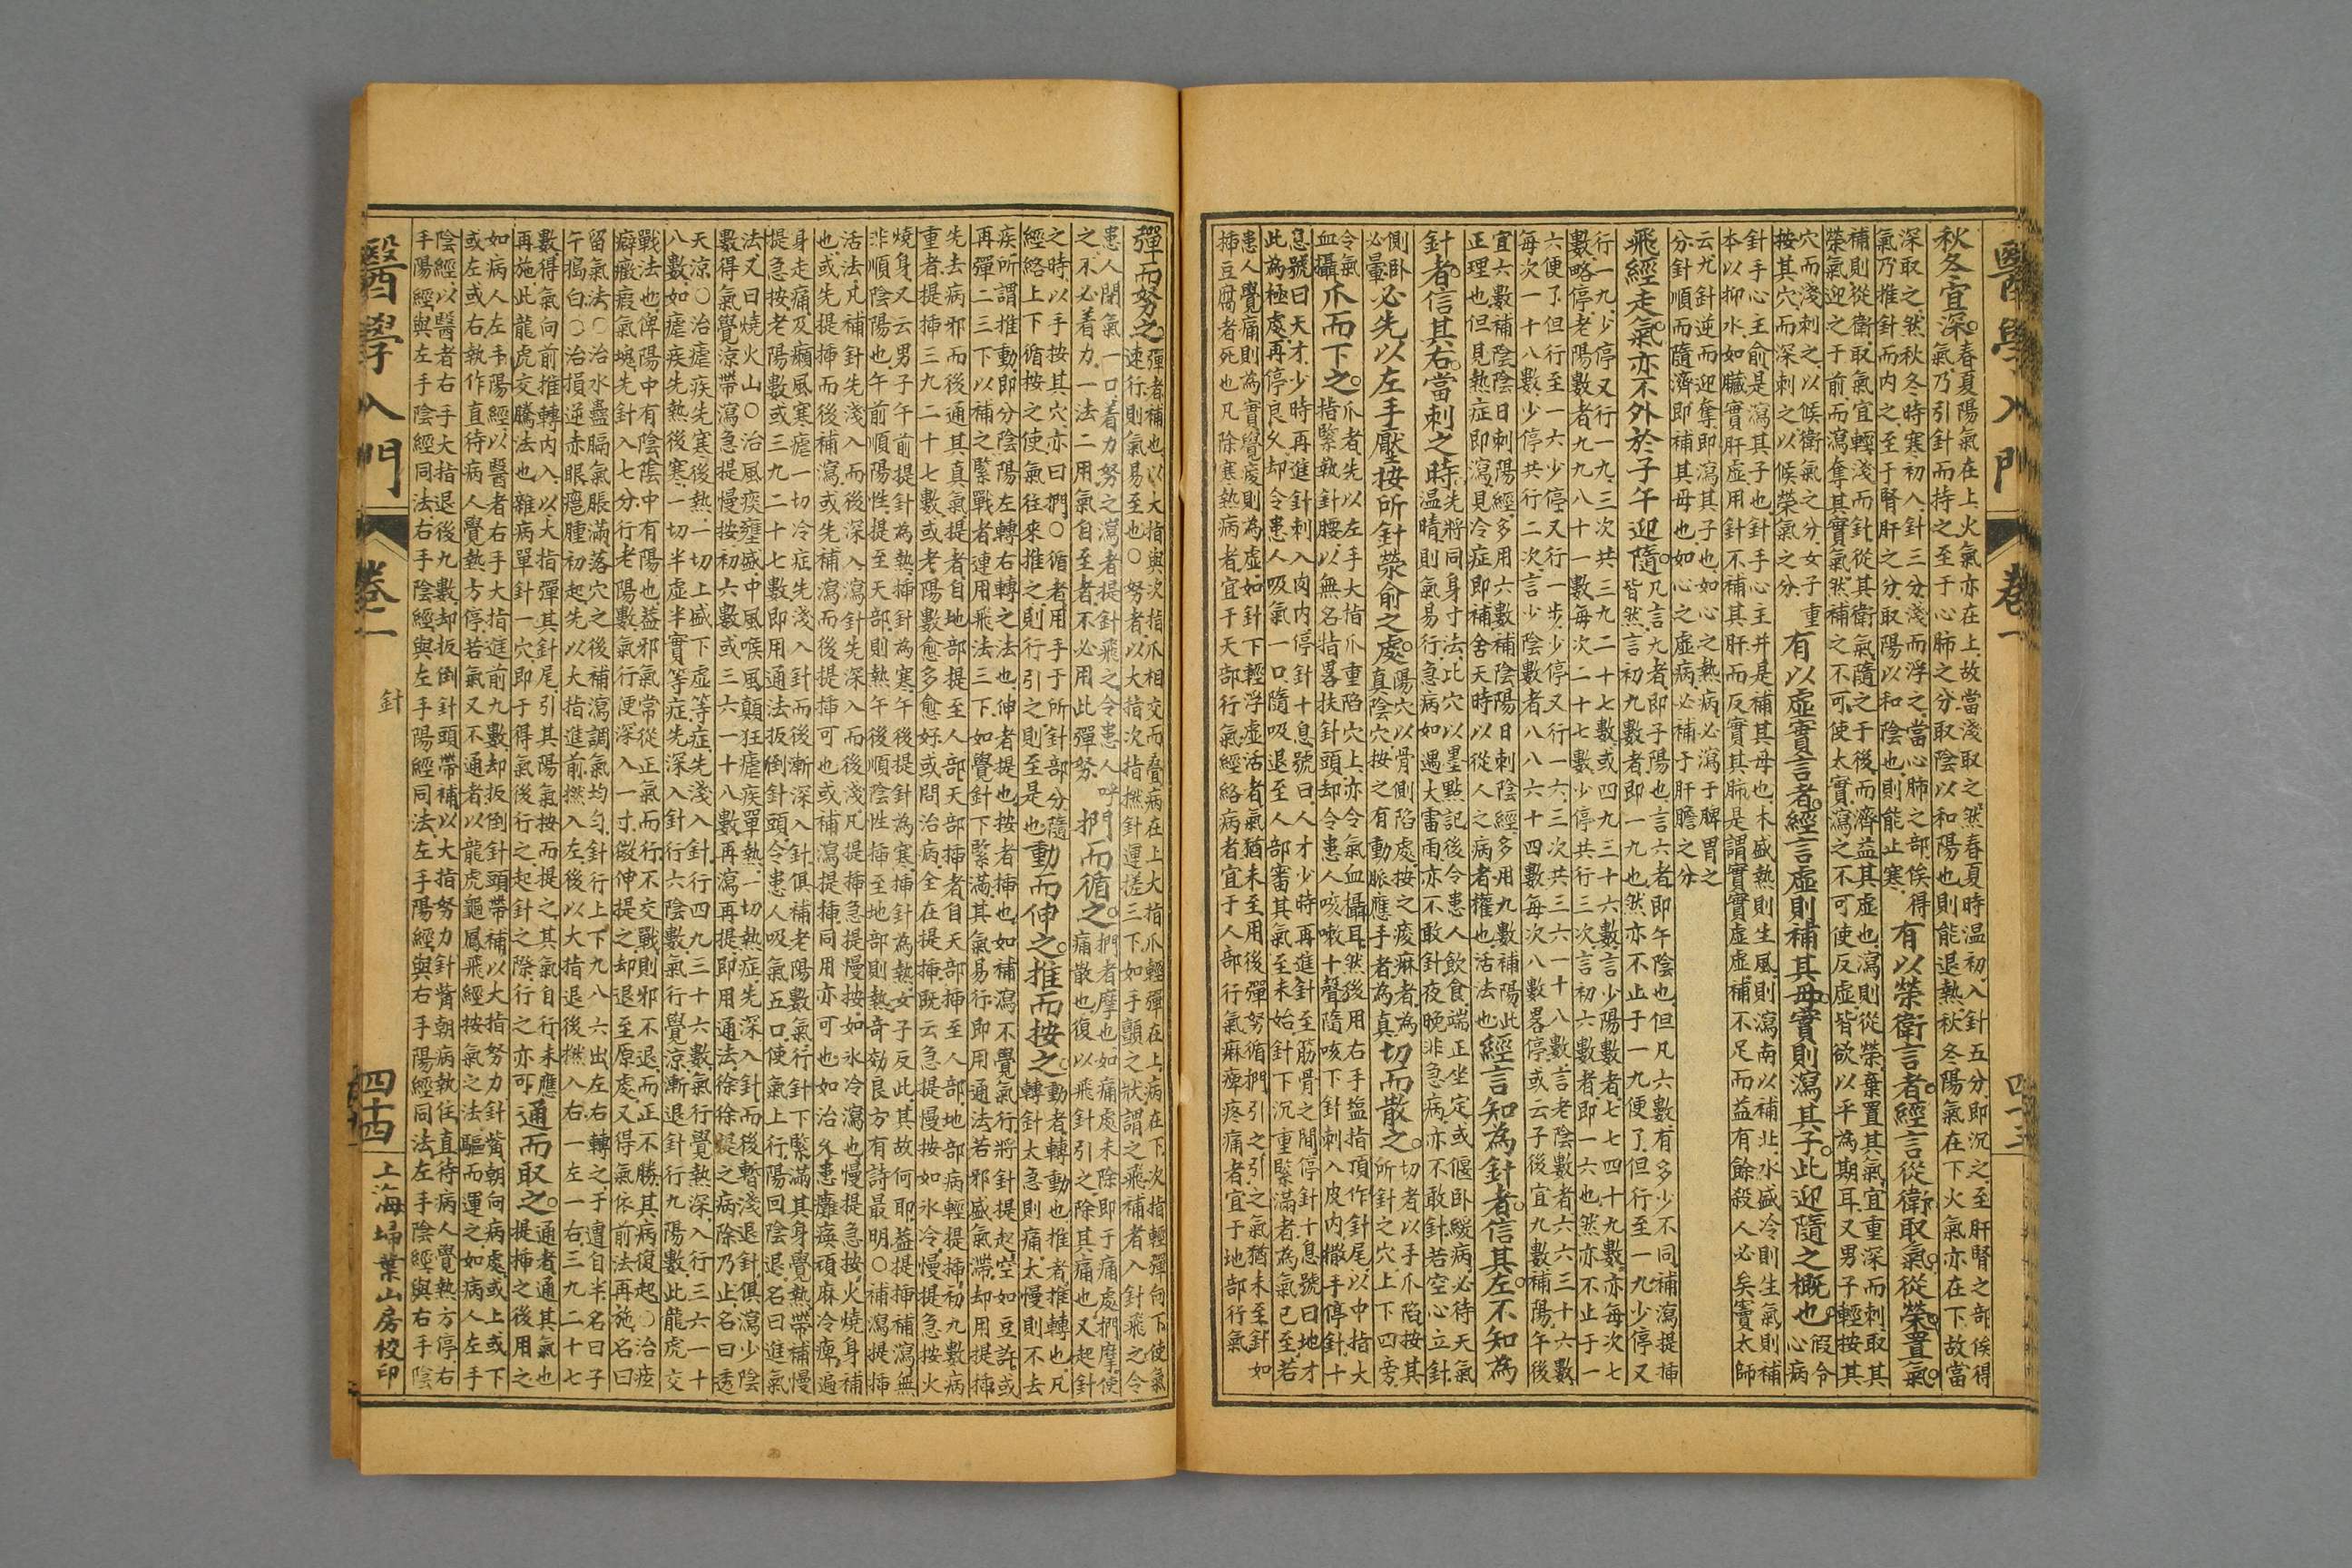 醫學入門 卷一 四十三
秋冬宜深。
春夏陽氣在上火氣亦在上故當淺取之然春夏時温初入針五分即沉之至肝腎之部俟得
氣乃引針而持之至于心肺之分取陰以和陽也則能退熱秋冬陽氣在下火氣亦在下故當
深取之然秋冬時寒初入針三分淺而浮之當心肺之部俟得
氣乃推針而内之至于腎肝之分取陽以和陰也則能止寒
有以榮衛言者。經言從衛取氣。從榮置氣。
補則從衛取氣宜輕淺而針從其衛氣隨之于後而濟益其虛也瀉則從榮棄置其氣宜重深而刺取其
榮氣迎之于前而瀉奪其實氣然補之不可使太實瀉之不可使反虛皆欲以平為期耳又男子輕按其
穴而淺刺之以候衛氣之分女子重
按其穴而深刺之以候榮氣之分
有以虛實言者。經言虛則補其母。實則瀉其子。此迎隨之概也。
假令
心病
針手心主俞是瀉其子也針手心主井是補其母也木盛熱則生風則瀉南以補北水盛冷則生氣則補
本以抑水如臟實肝虛用針不補其肝而反實其肺是謂實實虛虛補不足而益有餘殺人必矣竇太師
云凢針逆而迎奪即瀉其子也如心之熱病必瀉于脾胃之
分針順而隨濟即補其母也如心之虛病必補于肝膽之分
飛經走氣。亦不外於子午迎隨。
凡言九者即子陽也言六者即午陰也但凡六數有多少不同補瀉提插
皆然言初九數者即一九也然亦不止于一九便了但行至一九少停又
行一九少停又行一九三次共三九二十七數或四九三十六數言少陽數者七七四十九數亦每次七
數略停老陽數者九九八十一數每次二十七數少停共行三次言初六數者即一六也然亦不止于一
六便了但行至一六少停又行一步少停又行一六三次共三六一十八數言老陰數者六六三十六數
每次一十八數少停共行二次言少陰數者八八六十四數每次八數畧停或云子後宜九數補陽午後
宜六數補陰陰日刺陽經多用六數補陰陽日刺陰經多用九數補陽此
正理也但見熱症即瀉見冷症即補舍天時以從人之病者權也活法也
經言知為針者。信其左。不知為
針者。信其右。當刺之時。
先將同身寸法比穴以墨點記後令患人飲食端正坐定或偃卧緩病必待天氣
温晴則氣易行急病如遇大雷雨亦不敢針夜晚非急病亦不敢針若空心立針
側卧
必暈
必先以左手壓按所針榮俞之處。
陽穴以骨側陷處按之痠麻者為
真陰穴按之有動脈應手者為真
切而散之。
切者以手爪陷按其
所針之穴上下四旁
令氣
血攝
爪而下之。
爪者先以左手大指爪重陷穴上亦令氣血攝耳然後用右手塩指頂作針尾以中指大
指緊執針腰以無名指畧扶針頭却令患人咳嗽十聲隨咳下針刺入皮内撒手停針十
息號曰天才少時再進針刺入肉内停針十息號曰人才少時再進針至筋骨之間停針十息號曰地才
此為極處再停良久却令患人吸氣一口隨吸退至人部審其氣至未始針下沉重緊滿者為氣已至若
患人覺痛則為實覺痠則為虛如針下輕浮虛活者氣猶未至用後彈努循捫引之引之氣猶未至針如
插豆腐者死也凡除寒熱病者宜于天部行氣經絡病者宜于人部行氣麻痺疼痛者宜于地部行氣
彈而努之。
彈者補也以大指與次指爪相交而疊病在上大指爪輕彈在上病在下次指輕彈向下使氣
速行則氣易至也○努者以大指次指撚針運搓三下如手顫之狀謂之飛補者入針飛之令
患人閉氣一口着力努之瀉者提針飛之令患人呼
之不必着力一法二用氣自至者不必用此彈努
捫而循之。
捫者摩也如痛處未除即于痛處捫摩使
痛散也復以飛針引之除其痛也又起針
之時以手按其穴亦曰捫○循者用手于所針部分隨
經絡上下循按之使氣往來推之則行引之則至是也
動而伸之。推而按之。
動者轉動也推者推轉也凡
轉針太急則痛太慢則不去
疾所謂推動即分陰陽左轉右轉之法也伸者提也按者插也如補瀉不覺氣行將針提起空如豆許或
再彈二三下以補之緊戰者連用飛法三下如覺針下緊滿其氣易行即用通法若邪盛氣滯却用提插
先去病邪而後通其真氣提者自地部提至人部天部插者自天部插至人部地部病輕提插初九數病
重者提插三九二十七數或老陽數愈多愈好或問治病全在提插既云急提慢按如氷冷慢提急按火
燒身又云男子午前提針為熱插針為寒午後提針為寒插針為熱女子反此其故何耶益提插補瀉無
非順陰陽也午前順陽性提至天部則熱午後順陰性插至地部則熱奇効良方有詩最明○補瀉提插
活法凡補針先淺入而後深入瀉針先深入而後淺凡提插急提慢按如氷冷瀉也慢提急按火燒身補
也或先提插而後補瀉或先補瀉而後提插可也或補瀉提插同用亦可也如治久患癱瘓頑麻冷痺遍
身走痛及癩風寒瘧一切冷症先淺入針而後漸深入針俱補老陽數氣行針下緊滿其身覺熱帶補慢
提急按老陽數或三九二十七數即用通法扳倒針頭令患人吸氣五口使氣上行陽回陰退名曰進氣
法又曰燒火山○治風痰壅盛中風喉風顛狂瘧疾單熱一切熱症先深入針而後暫淺退針俱瀉少陰
數得氣覺涼帶瀉急提慢按初六數或三六一十八數再瀉再提即用通法徐徐提之病除乃止名曰透
天涼○治瘧疾先寒後熱一切上盛下虛等症先淺入針行四九三十六數氣行覺熱深入行三六一十
八數如瘧疾先熱後寒一切半虛半實等症先深入針行六陰數氣行覺涼漸退針行九陽數此龍虎交
戰法也俾陽中有陰陰中有陽也益邪氣常從正氣而行不交戰則邪不退而正不勝其病復起○治痃
癖癥瘕氣塊先針入七分行老陽數氣行便深入一寸微伸提之却退至原處又得氣依前法再施名曰
留氣法○治水蠱膈氣脹滿落穴之後補瀉調氣均勻針行上下九八六出左右轉之于遭自半名曰子
午搗臼○治損逆赤眼癰腫初起先以大指進前撚入左後以大指退後撚入右一左一右三九二十七
數得氣向前推轉内入以大指彈其針尾引其陽氣按而提之其氣自行未應
再施此龍虎交騰法也雜病單針一穴即于得氣後行之起針之際行之亦可
通而取之。
通者通其氣也
提插之後用之
如病人左手陽經以醫者右手大指進前九數却扳倒針頭帶補以大指努力針觜朝向病處或上或下
或左或右執作直待病人覺熱方停若氣又不通者以龍虎龜鳳飛經按氣之法驅而運之如病人左手
陰經以醫者右手大指退後九數却扳倒針頭帶補以大指努力針觜朝病執住直待病人覺熱方停右
手陽經與左手陰經同法右手陰經與左手陽經同法左手陽經與右手陽經同法左手陰經與右手陰
醫學入門 卷一 針 四十四 上海埽葉山房校印